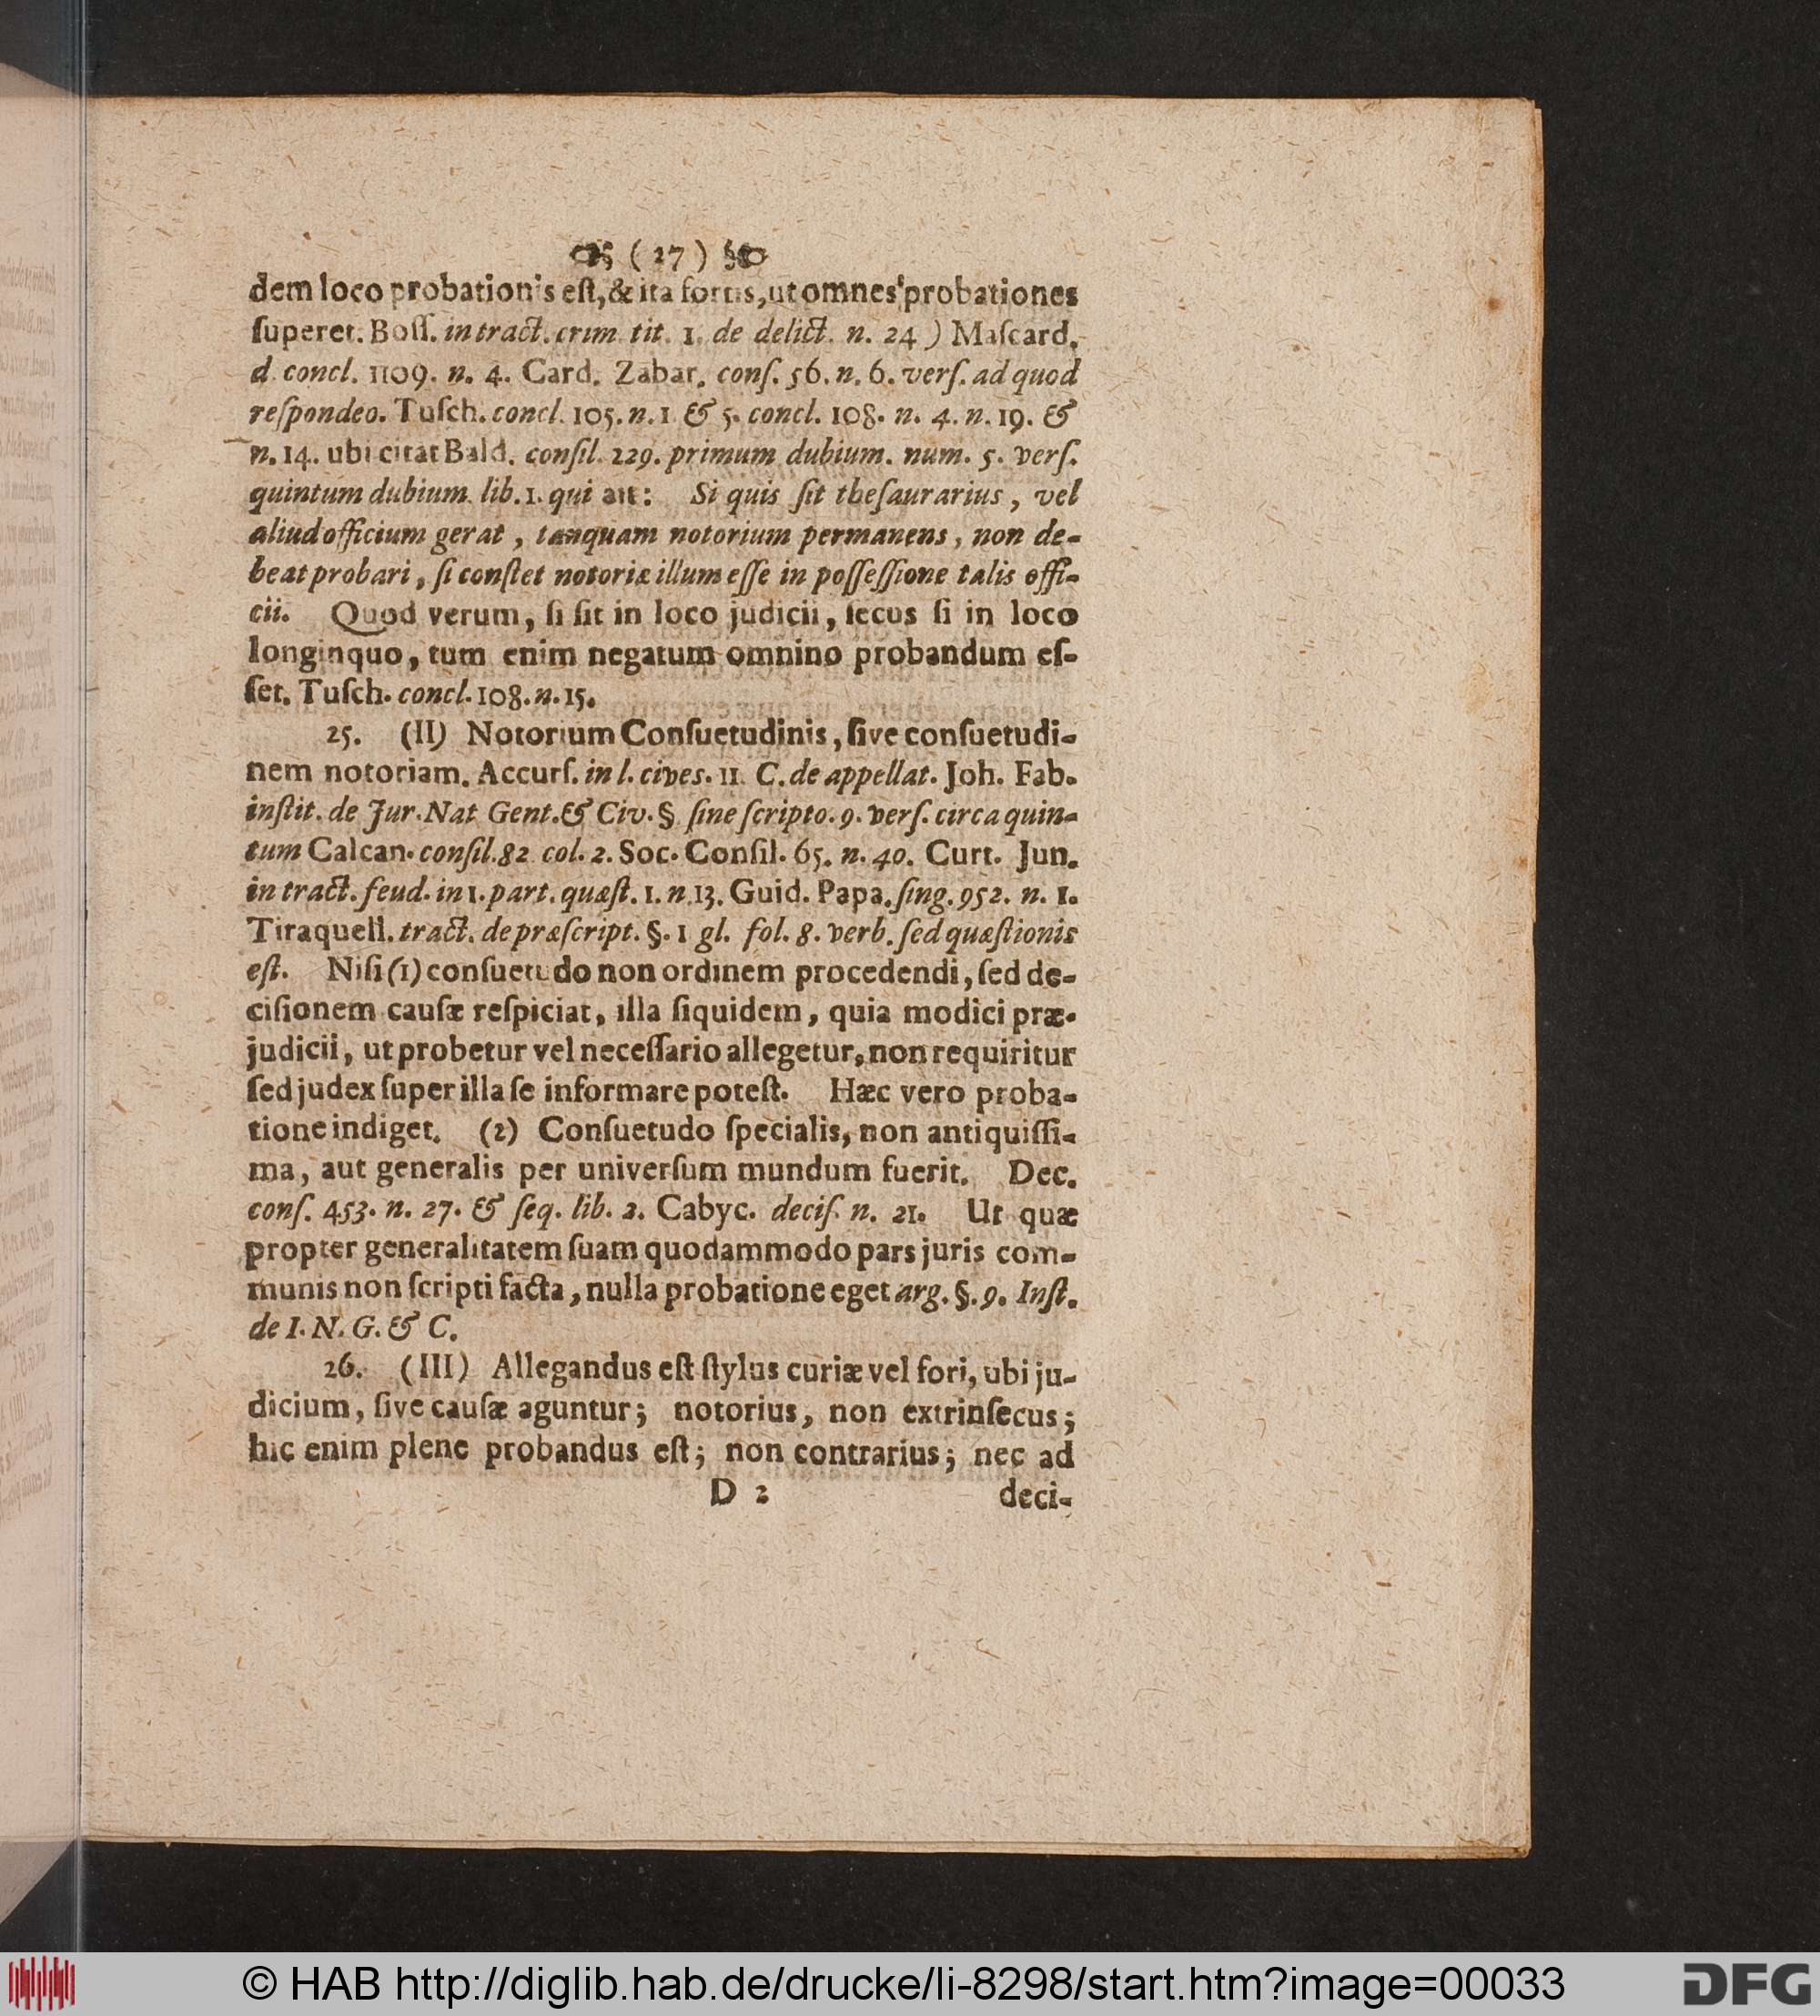 ( 27 )
dem loco probationis eſt, & ita fortis, ut omnes probationes
ſuperet. Boſſ. in tract. crim. tit. 1. de delict. n. 24 ) Maſcard.
d. concl. 1109. n. 4. Card. Zabar. conſ. 56. n. 6. verſ. ad quod
reſpondeo. Tuſch. concl. 105. n. 1. & 5. concl. 108. n. 4. n. 19. &
n. 14. ubi citat Bald. conſil. 229. primum dubium. num. 5. verſ.
quintum dubium. lib. 1. qui ait: Si quis ſit theſaurarius, vel
aliud officium gerat, tanquam notorium permanens, non de-
beat probari, ſi conſtet notoriæ illum eſſe in poſſeſſione talis offi-
cii. Quod verum, ſi ſit in loco judicii, ſecus ſi in loco
longinquo, tum enim negatum omnino probandum eſ-
ſet. Tuſch. concl. 108. n. 15.
25. (II) Notorium Conſuetudinis, ſive conſuetudi-
nem notoriam. Accurſ. in l. cives. 11. C. de appellat. Joh. Fab.
inſtit. de Jur. Nat Gent. & Civ. § ſine ſcripto. 9. verſ. circa quin-
tum Calcan. conſil. 82 col. 2. Soc. Conſil. 65. n. 40. Curt. Jun.
in tract. feud. in 1. part. quæſt. 1. n. 13. Guid. Papa. ſing. 952. n. 1.
Tiraquell. tract. de præſcript. §. 1 gl. fol. 8. verb. ſed quæſtionis
eſt. Niſi (1) conſuetudo non ordinem procedendi, ſed de-
ciſionem cauſæ reſpiciat, illa ſiquidem, quia modici præ-
judicii, ut probetur vel neceſſario allegetur, non requiritur
ſed judex ſuper illa ſe informare poteſt. Hæc vero proba-
tione indiget. (2) Conſuetudo ſpecialis, non antiquiſſi-
ma, aut generalis per univerſum mundum fuerit. Dec.
conſ. 453. n. 27. & ſeq. lib. 2. Cabyc. deciſ. n. 21. Ut quæ
propter generalitatem ſuam quodammodo pars juris com-
munis non ſcripti facta, nulla probatione eget arg. §. 9. Inſt.
de I. N. G. & C.
26. (III) Allegandus eſt ſtylus curiæ vel fori, ubi ju-
dicium, ſive cauſæ aguntur; notorius, non extrinſecus;
hic enim plene probandus eſt; non contrarius; nec ad
D 2 deci-
© HAB http://diglib.hab.de/drucke/li-8298/start.htm?image=00033
DFG